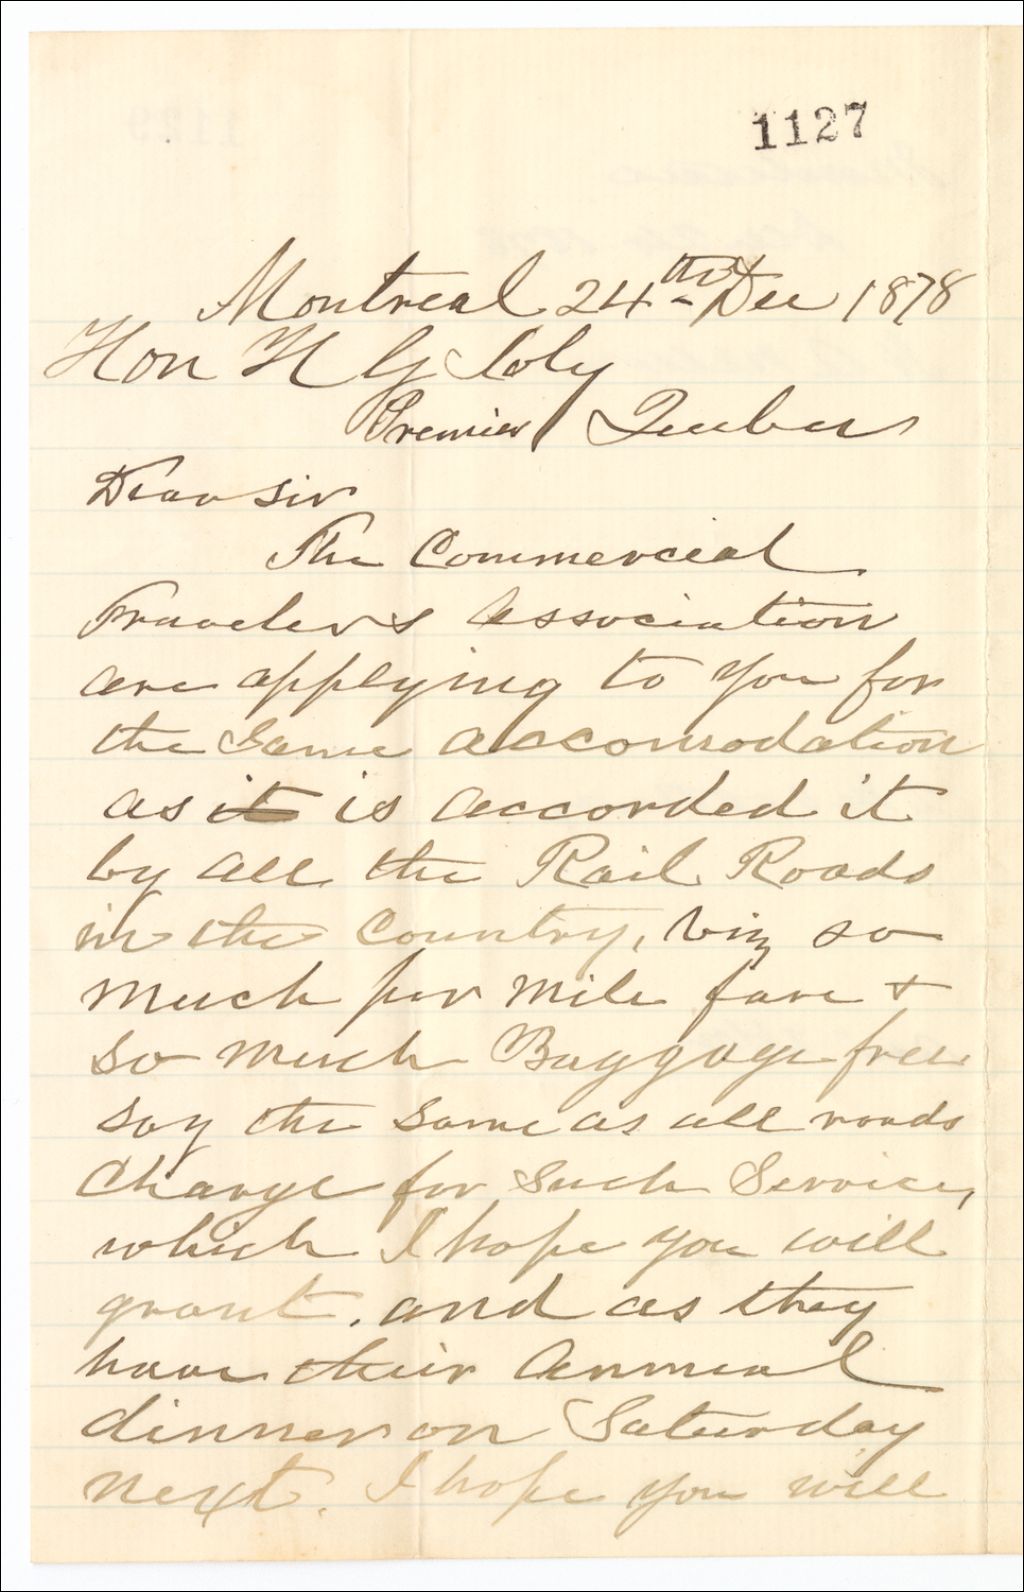 1127
Montreal 24th Dec 1878
Hon H G Joly
Premier Quebec
Dear Sir
The Commercial
Travelers Association
are applying to you for
the same accomodation
as it is accorded it
by all the Rail Roads
in the Country, viz so
much per mile fare &
so much Baggage free
say the same as all roads
charge for such service,
which I hope you will
grant. and as they
have their annual
dinner on Saturday
next. I hope you will